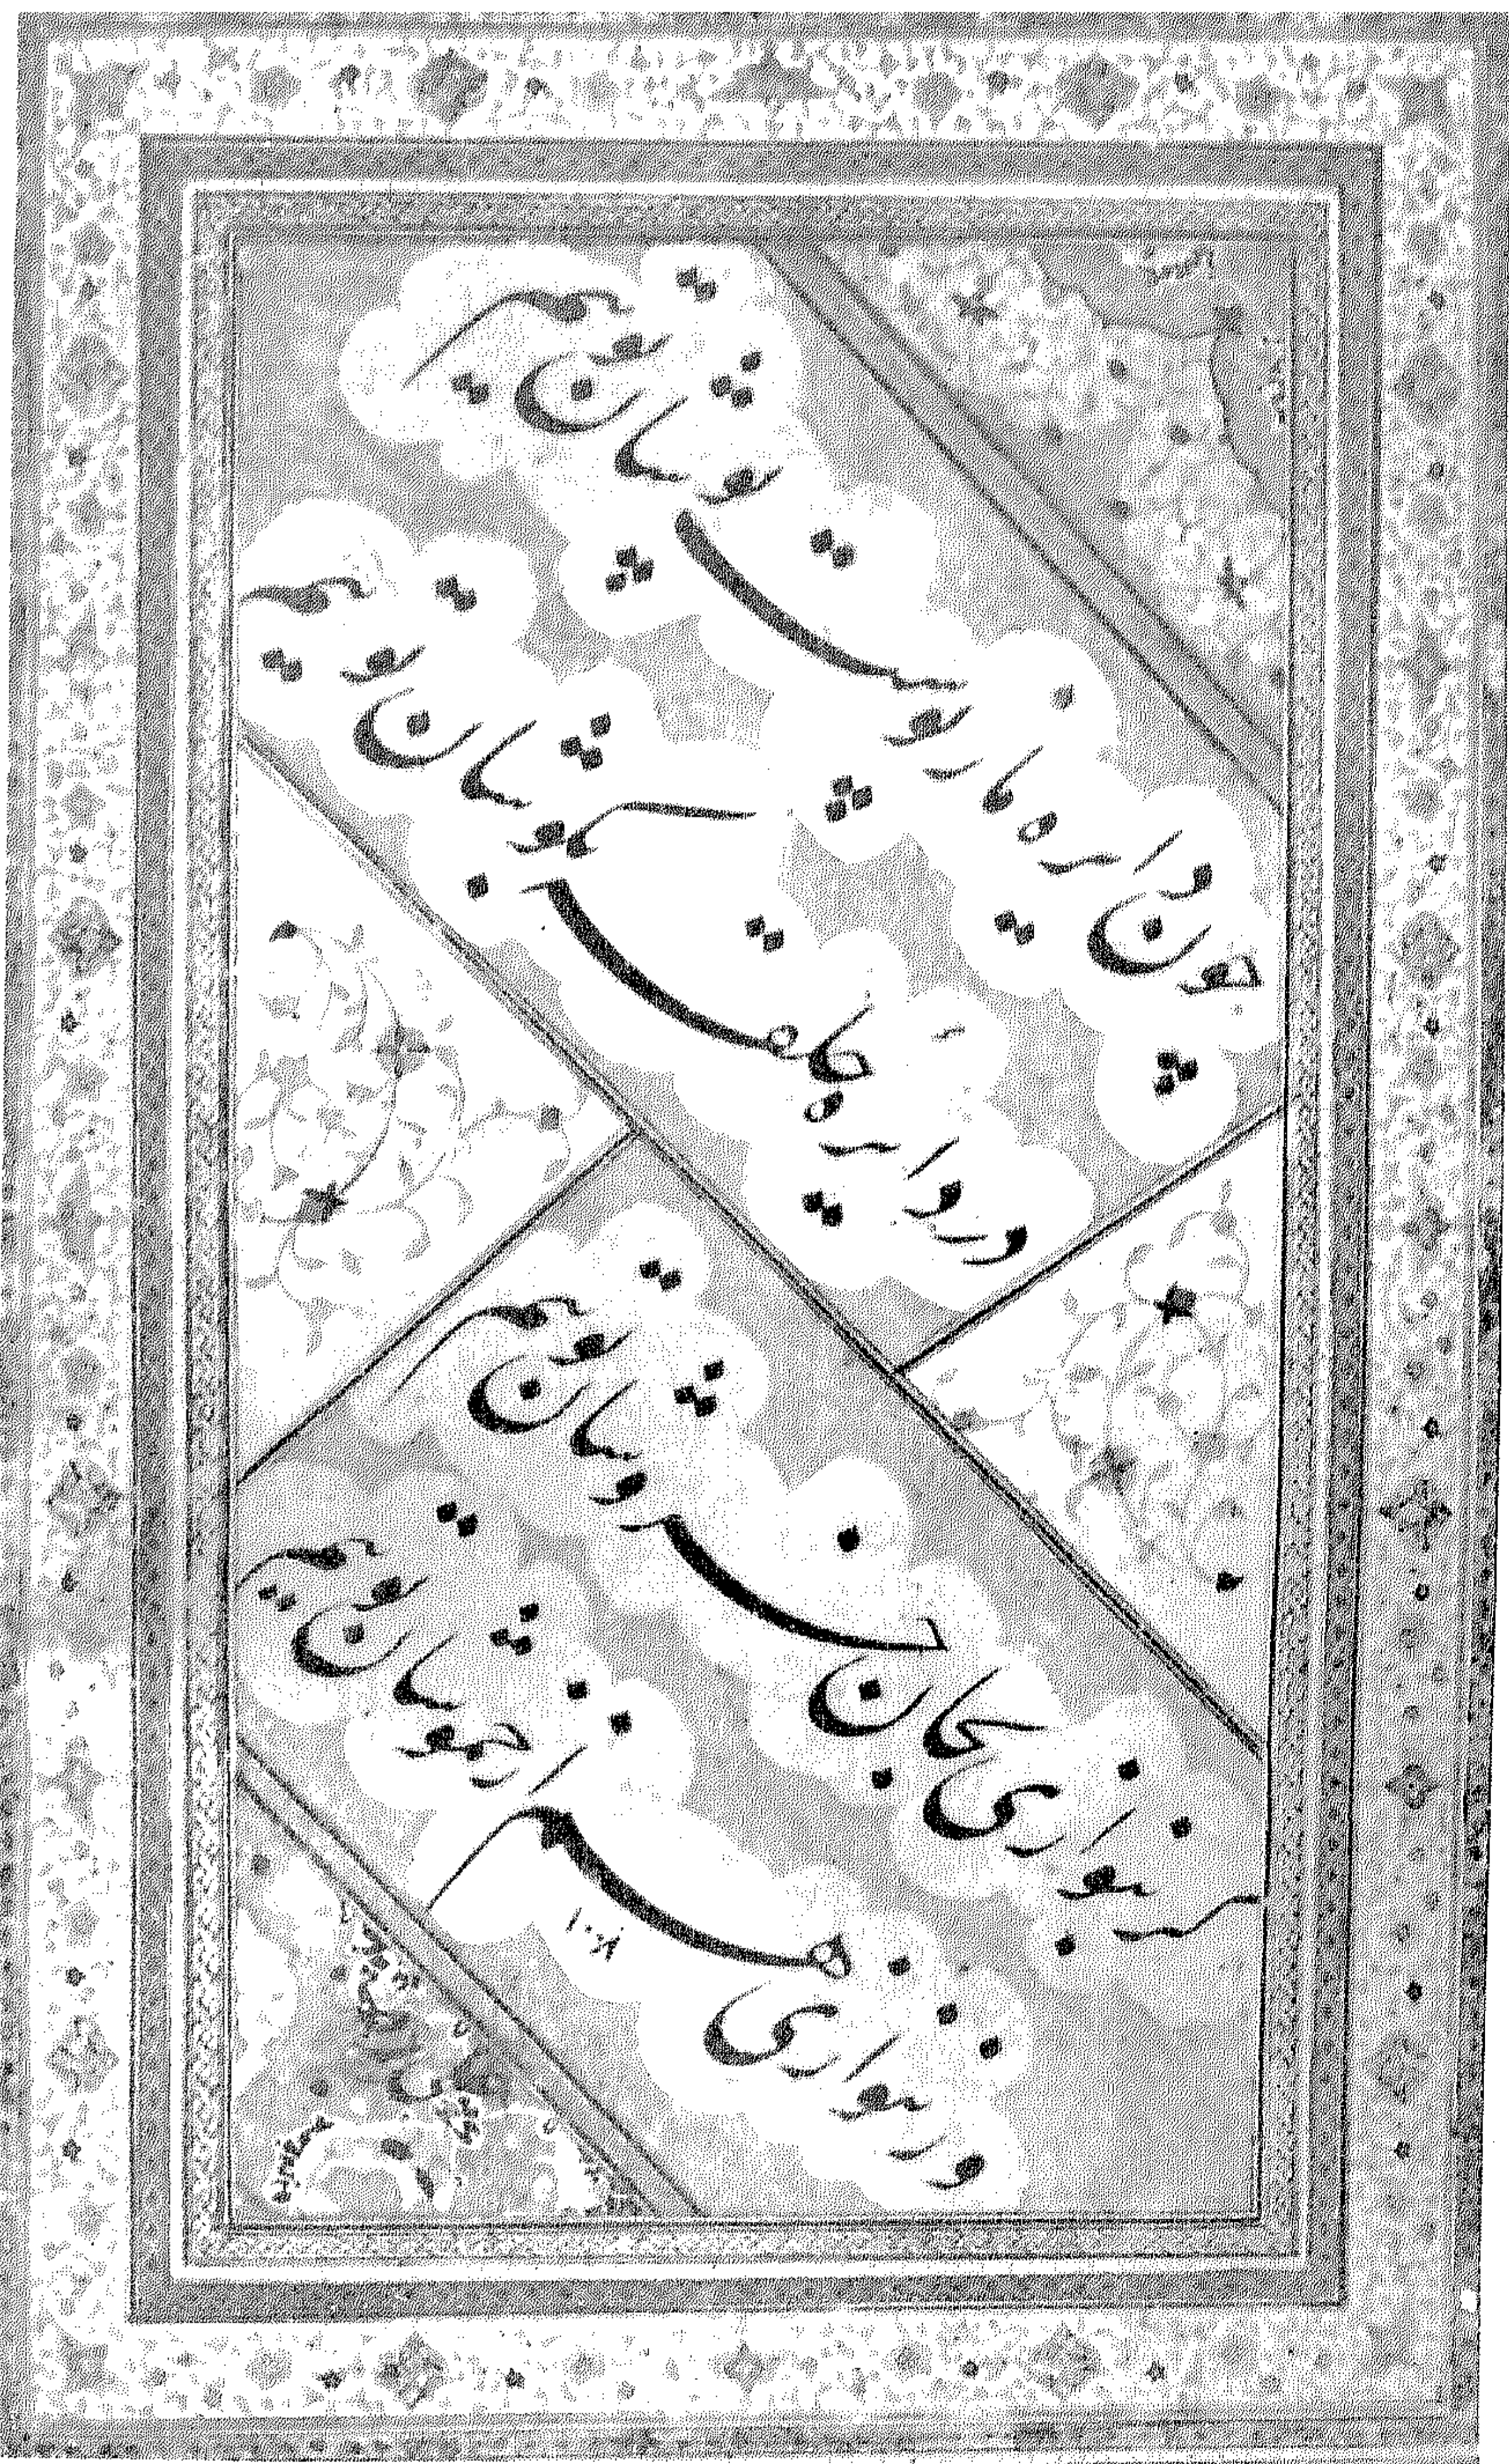 چون دایره ما ز پوست پوشان توایم
در دایره حلقه بگوشان توایم
گر بنوازی بجان خروشان توایم
ور ننوازی هم از خموشان توایم